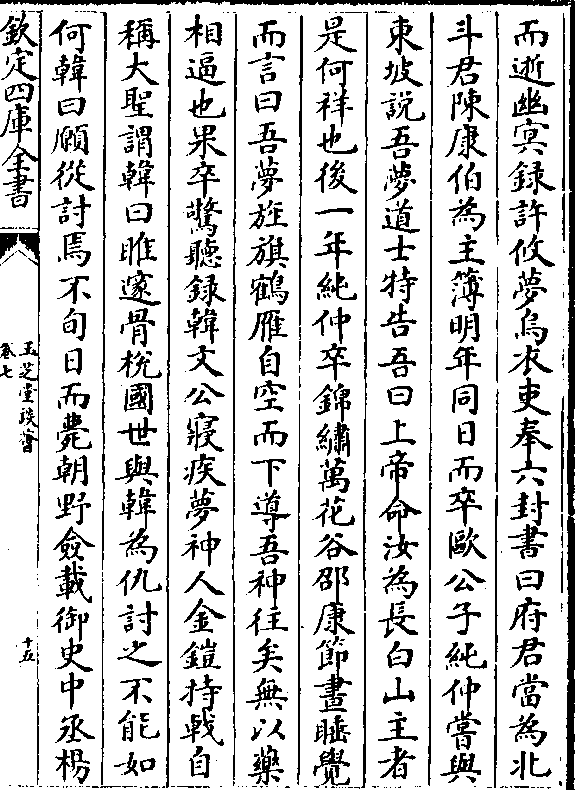 而逝幽冥録許攸夢烏衣吏奉六封書曰府君當為北
斗君陳康伯為主簿明年同日而卒歐公子純仲嘗與
東坡説吾夢道士特告吾曰上帝命汝為長白山主者
是何祥也後一年純仲卒錦繡萬花谷邵康節晝睡覺
而言曰吾夢旌旗鶴雁自空而下導吾神往矣無以藥
相逼也果卒驚聽録韓文公寢疾夢神人金鎧持㦸自
稱大聖謂韓曰睢邃骨梲國世與韓為仇討之不能如
何韓曰願從討焉不旬日而薨朝野僉載御史中丞楊
欽定四庫全書
玉芝堂談薈
卷七
十五